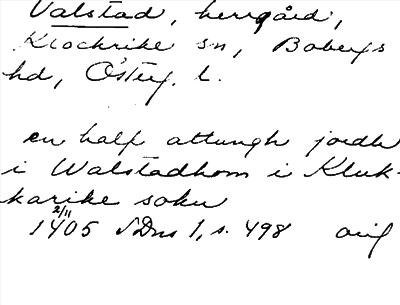 Valstad, herrgård,
Klockrike sn, Bobergs
hd, Österg. l.
en half attungh jordh
i Walstadhom i Kluk-
karike sokn
2/11
1405 SDns 1, s. 498 orig